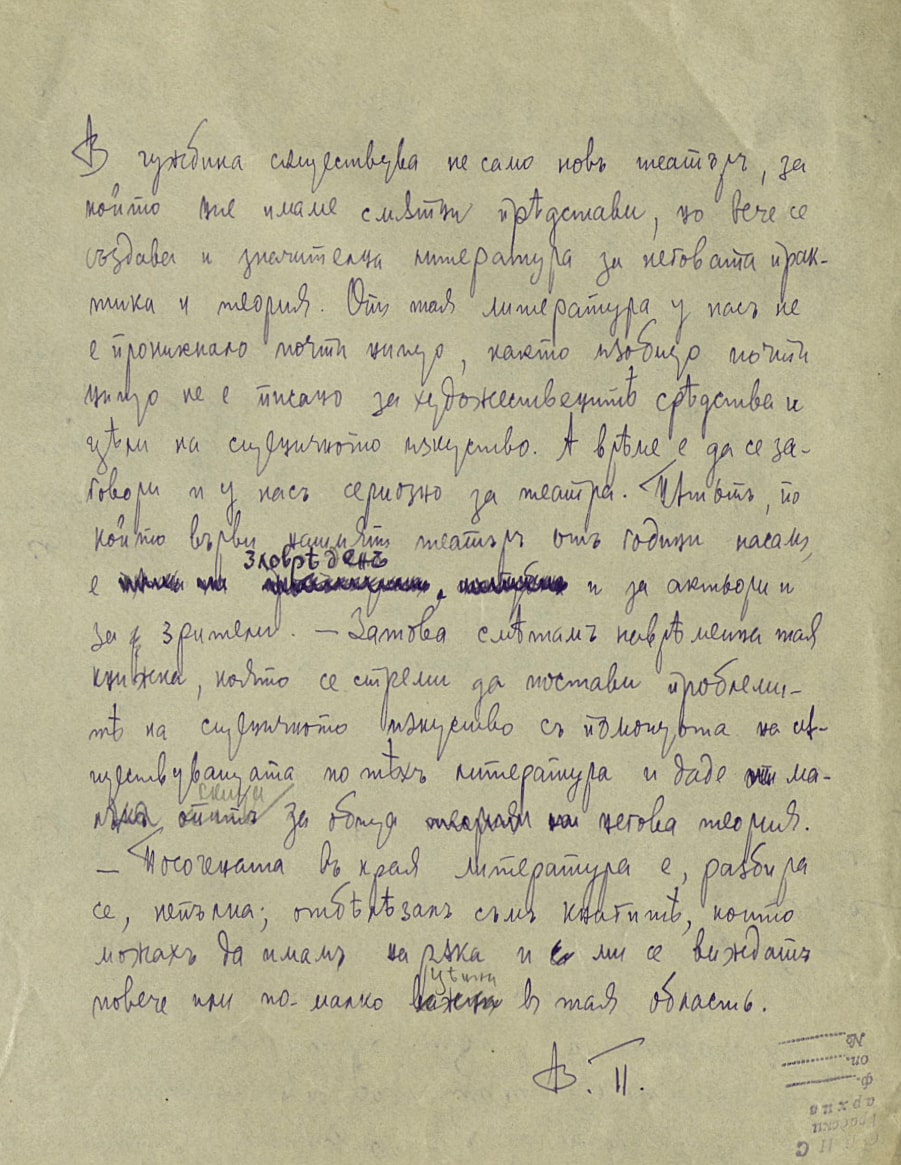 В чужбина сѫществува не само новъ театъръ, за
който ние имаме смѫтни прѣдстави, но вече се
създава и значителна литература за неговата прак-
тика и теория. Отъ тая литература у насъ не
е проникнало почти нищо, както изобщо почти
нищо не е писано за художественитѣ срѣдства и
цѣли на сценичното изкуство. А врѣме е да се за-
говори и у насъ сериозно за театра. Пѫтьтъ, по
който върви нашиятъ театъръ отъ години насамъ,
е зловрѣденъ и за актьори и
за зрители. — Затова смѣтамъ наврѣменна тая
книжка, която се стреми да постави проблеми-
тѣ на сценичното изкуство съ помощьта на сѫ-
ществуващата по тѣхъ литература и даде ма-
лъкъ опитъ скица за обща негова теория.
— Посочената въ края литература е, разбира
се, непълна; отбѣлѣзалъ съмъ книгитѣ, които
можахъ да имамъ на рѫка и ми се виждатъ
повече или по-малко цѣнни в тая область.
В. П.
№
оп.
ф.
архив